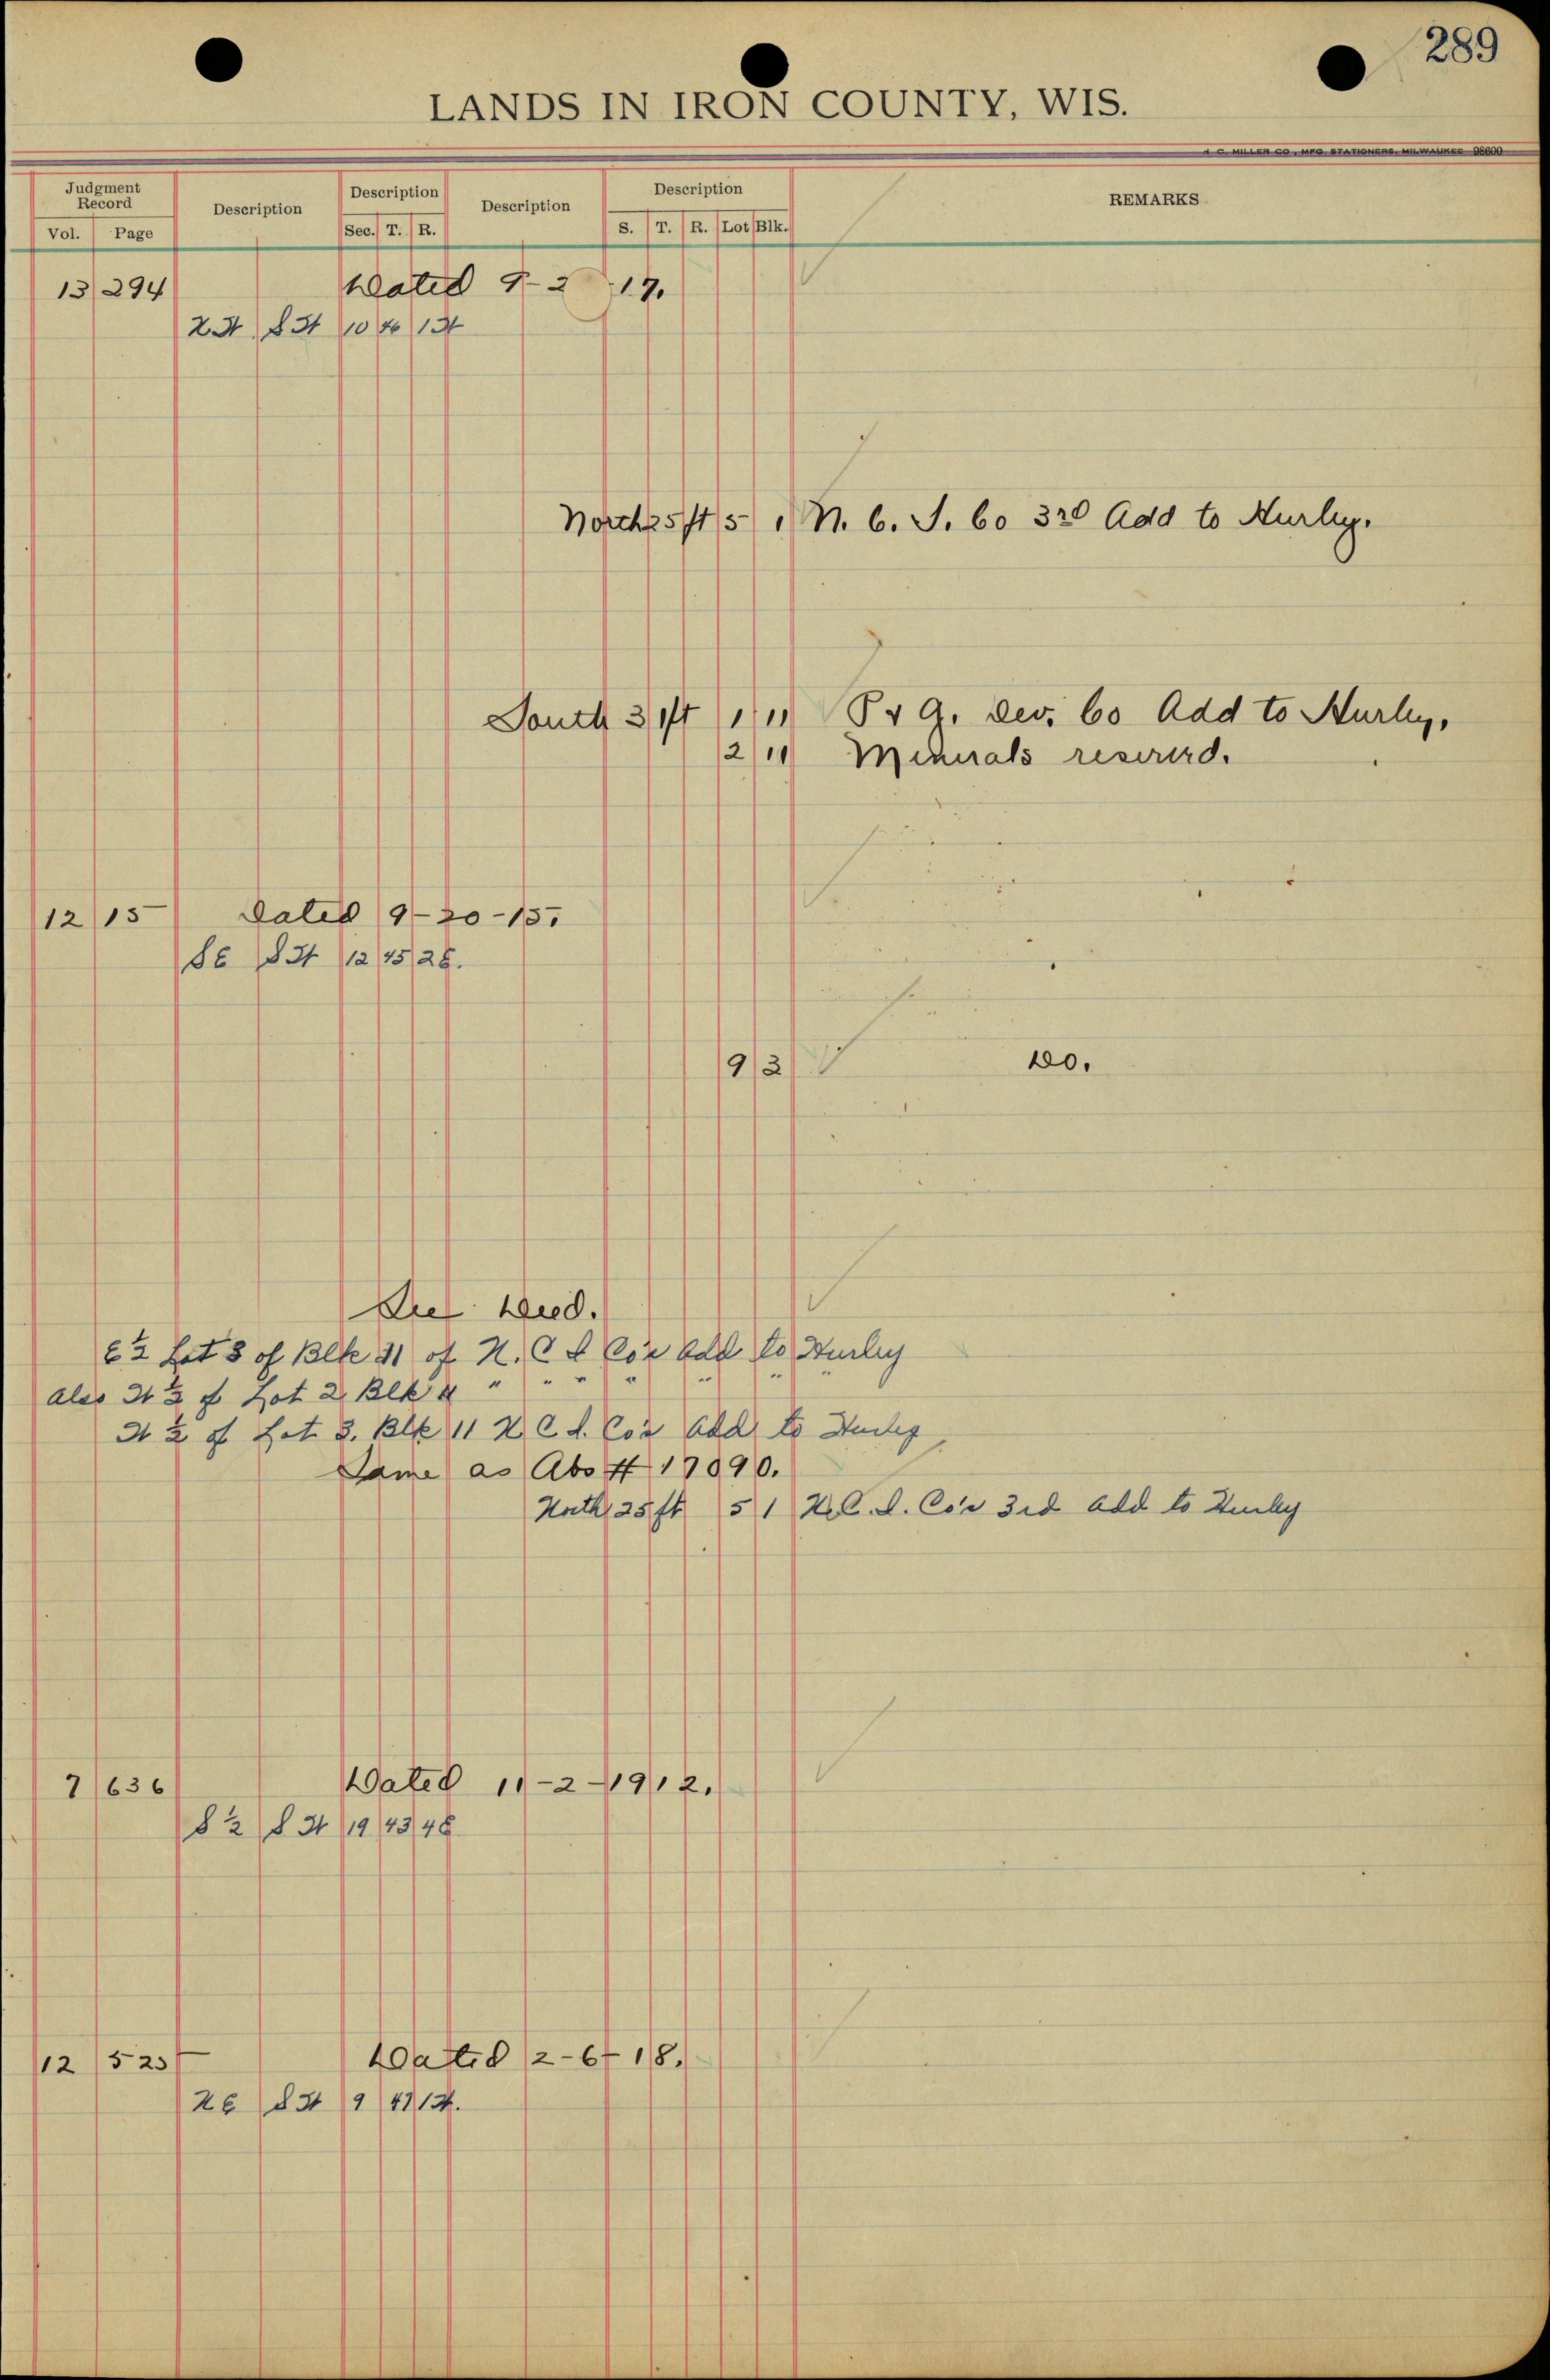 289
LANDS IN IRON COUNTY, WIS.
H. C. MILLER CO., MFG. STATIONERS, MILWAUKEE 98600
Judgment Record Description Description Description Description REMARKS
Vol. Page Sec. T. R. S. T. R. Lot Blk.
13 294 Dated 9-2 -17.
SW 10 46
North 25 ft 5 1 N. C. I. Co 3rd Add to Hurley.
South 31 ft 1 11 P & A. Dev. Co Add to Hurley,
2 11 Minerals reserved.
12 15 Dated 9-20-15.
SE SW 12 45 2E.
9 3 Do.
See Deed.
E½ Lot 3 of Blk 11 of N. C I Co's Add to Hurley
also W½ of Lot 2 Blk 11 " " " " " " "
W½ of Lot 3. Blk 11 N C I. Co's Add to Hurley
Same as Abs # 17090.
North 25 ft 5 1 N. C. I. Co's 3rd Add to Hurley
7 636 Dated 11-2-1912.
S½ SW 19 43 4E
12 525 Dated 2-6-18.
NE SW 9 47